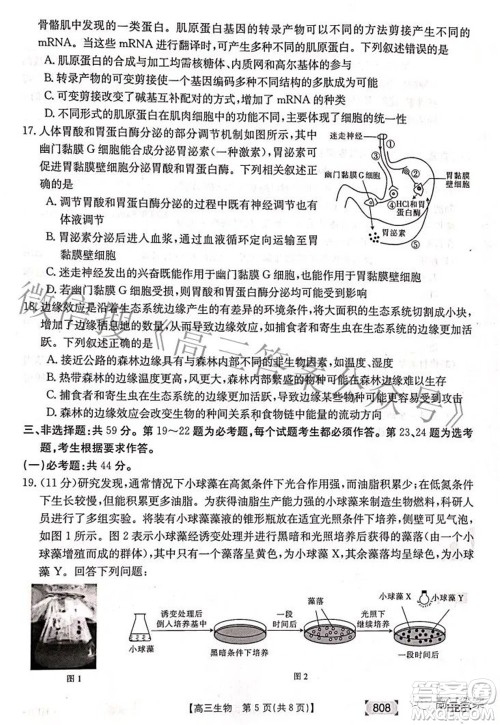 骨骼肌中发现的一类蛋白。肌原蛋白基因的转录产物可以不同的方法剪接产生不同的
mRNA。当这些 mRNA 进行翻译时,可产生多种不同的肌原蛋白。下列叙述错误的是
A. 肌原蛋白的合成与加工均需要核糖体、内质网和高尔基体的参与
B. 转录产物的可变剪接使一个基因编码多种蛋白质成为可能
C. 可变剪切改变了碱基互补配对的方式,使基因的功能更加多样化
D. 不同的肌原蛋白在肌肉细胞中的功能不同,主要体现了生命的统一性
17. 人体胃酸和胃蛋白酶分泌的部分调节机制如图所示,其中
幽门黏膜 G 细胞能合成分泌胃泌素(一种激素),胃泌素可
促进胃黏膜壁细胞分泌胃酸和胃蛋白酶。下列相关叙述正
确的是
A. 调节胃酸和胃蛋白酶分泌的方式既有神经调节又有激素
调节
B. 胃泌素分泌后进入血浆,通过血液循环运送到胃黏膜壁细
胞
C. 迷走神经对胃酸分泌的调节可作用于幽门黏膜 G 细胞和胃黏膜壁细胞
D. 若蛋白质的摄入量增加,则胃酸和胃蛋白酶分泌量也会增加
迷走神经
幽门黏膜 G 细胞
胃黏膜
壁细胞
HCl和胃
蛋白酶
胃泌素
18. 边缘效应是沿着生态系统边缘存在不同的环境条件,将大面积的生态系统切割成小块,
增加了边缘栖息地的面积。边缘效应对生态系统有较大的影响,如捕食者和寄生者易于
从生态系统边缘入侵到生态系统内部。下列叙述正确的是
A. 接近公路的森林边缘具有与森林内部不同的非生物因素,如温度、湿度
B. 热带森林的面积越大、形状越不规则,则受到的边缘效应越大
C. 捕食者和寄生者在生态系统的边缘和生态系统内部都可造成边缘效应
D. 森林的边缘效应可影响该地区的物种组成和食物链中能量的流动方向
三、非选择题:共 59 分。第 19～22 题为必考题,每个试题考生都必须作答。第 23、24 题为选考
题,考生根据要求作答。
(一)必考题:共 44 分。
19. (11 分)研究发现,通常情况下小球藻在高氮条件下光合作用强而油脂积累少;在低氮条
件下生长较慢,但能积累较多的油脂。为获得油脂生产能力强的小球藻藻种,科研人员
进行了多组实验。一种为将装有小球藻藻液的锥形瓶放在适宜光照条件下进行培养,
如图 1 所示。图 2 表示小球藻经诱变处理并进行黑暗和光照培养的实验过程,在光照下
培养后发现两种小球藻,一个藻落呈黄色,为小球藻 X,其他藻落均呈绿色,为小球藻
Y。回答下列问题:
诱变处理后
倒入培养基
黑暗条件下培养
一段
时间后
藻落
光照下
继续培养
一段时间后
小球藻 X
小球藻 Y
图 1
图 2
【高三生物 第 5 页(共 8 页)】
808
微信搜《高三答案公众号》